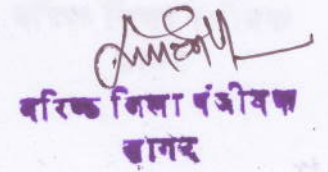 वरिष्ठ जिला पंजीयक
सागर